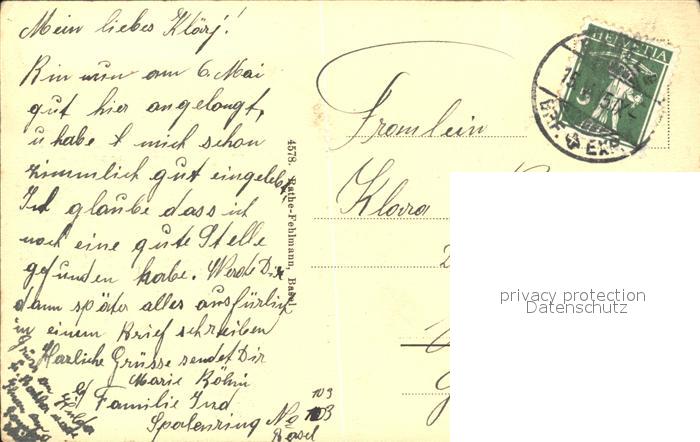 Mein liebes Klärj!
Bin nun am 6. Mai
gut hier angelangt,
u habe mich schon
zimmlich gut eingelebt
Ich glaube dass ich
noch eine gute Stelle
gefunden habe. Werde Dir
dann später alles ausfürlich
in einem Brief schreiben
Herzliche Grüsse sendet Dir
Marie Böhni
Familie Ind
Spalenring No 103
Basel
103
4578. Rathe-Fehlmann, Basel
Fromlein
Klara
HELVETIA
EXP.
privacy protection
Datenschutz